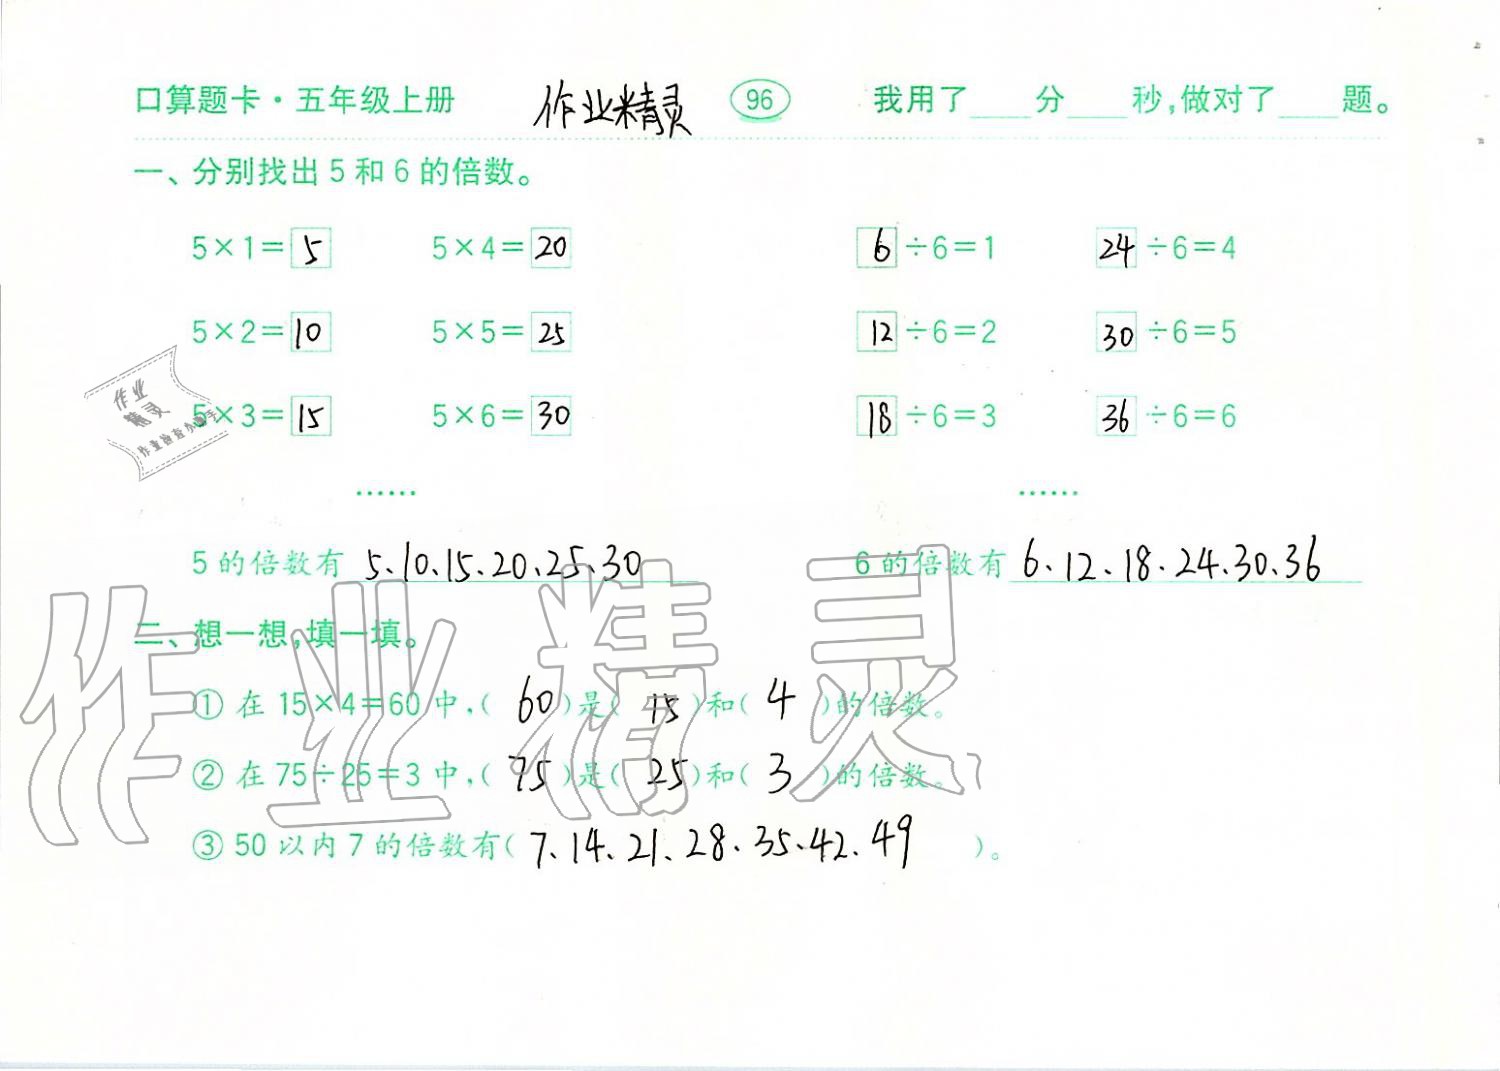 口算题卡·五年级上册 作业精灵 96 我用了____分____秒,做对了____题。
一、分别找出5和6的倍数。
5×1=5 5×4=20 6÷6=1 24÷6=4
5×2=10 5×5=25 12÷6=2 30÷6=5
作业
精灵
作业检查小助手
5×3=15 5×6=30 18÷6=3 36÷6=6
…… ……
5的倍数有 5、10、15、20、25、30 6的倍数有 6、12、18、24、30、36
二、想一想,填一填。
①在15×4=60中,(60)是(15)和(4)的倍数。
②在75÷25=3中,(75)是(25)和(3)的倍数。
③50以内7的倍数有(7、14、21、28、35、42、49)。
作业精灵